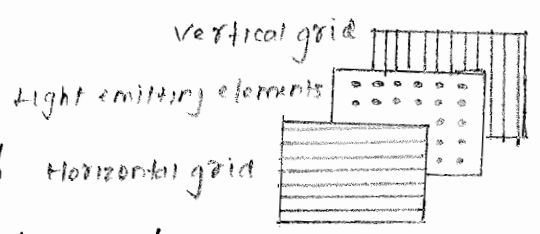 Vertical grid
Light emitting elements
Horizontal grid